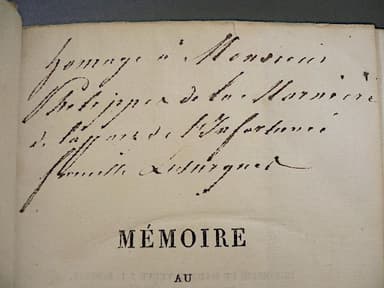 homage à Monsieur
Philippes de la Marniere
de la part de l'Infortunée
famille Lesurques
MÉMOIRE
AU